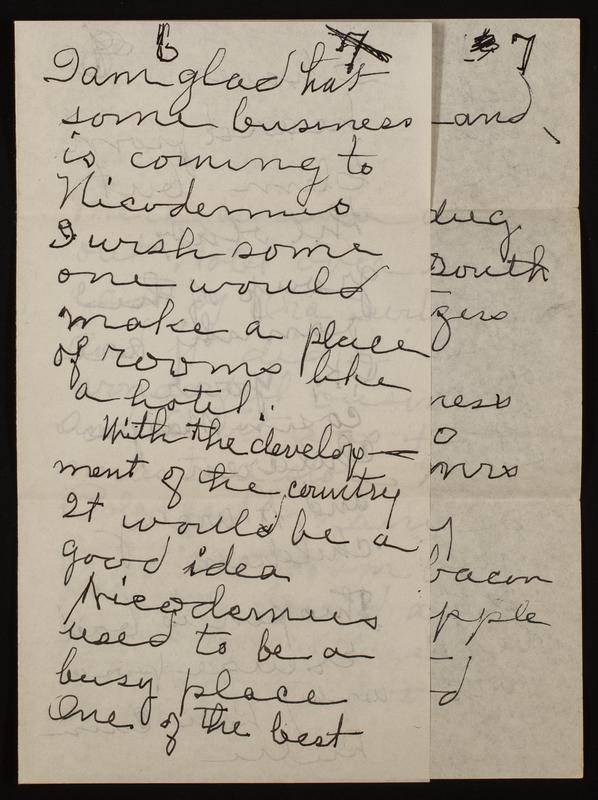 6
I am glad hat
some business
is coming to
Nicodemus
I wish some
one would
make a place
of rooms like
a hotel.
With the develop-
ment of the country
It would be a
good idea
Nicodemus
used to be a
busy place
One of the best
7
and
dug
South
ness
bacon
pple